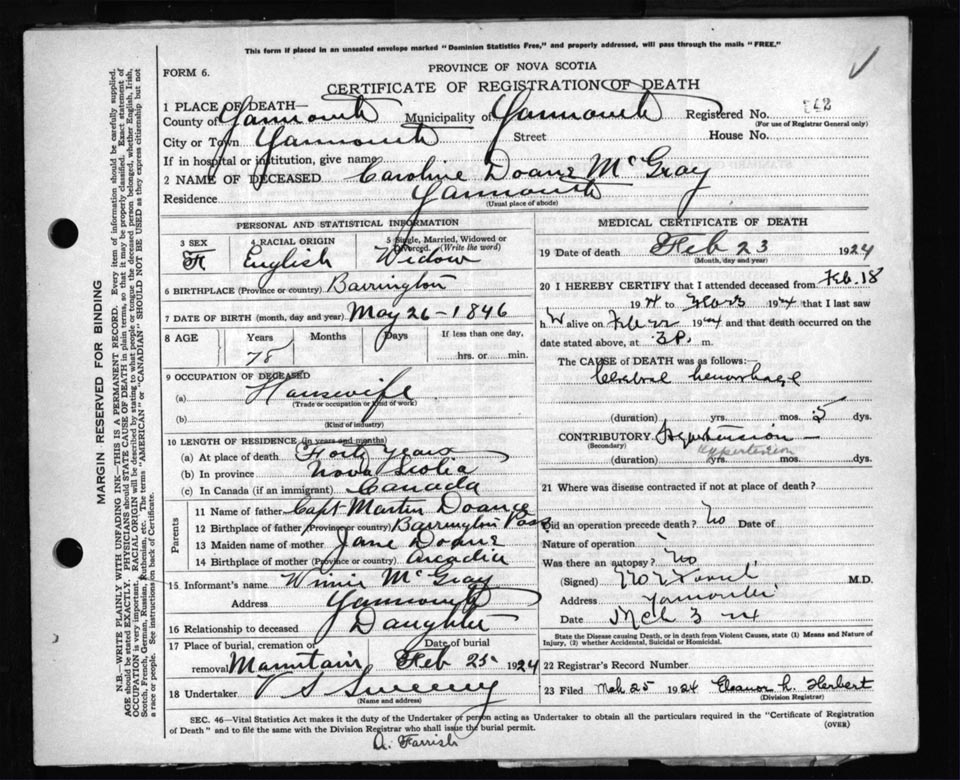 This form if placed in an unsealed envelope marked "Dominion Statistics Free," and properly addressed, will pass through the mails "FREE."
FORM 6.
PROVINCE OF NOVA SCOTIA
CERTIFICATE OF REGISTRATION OF DEATH
1 PLACE OF DEATH—
County of Yarmouth Municipality of Yarmouth Registered No.
(For use of Registrar General only)
City or Town Yarmouth Street House No.
If in hospital or institution, give name
2 NAME OF DECEASED Caroline Doane McGray
Residence Yarmouth
(Usual place of abode)
PERSONAL AND STATISTICAL INFORMATION
3 SEX 4 RACIAL ORIGIN 5 Single, Married, Widowed or Divorced. (Write the word)
F English Widow
6 BIRTHPLACE (Province or country) Barrington
7 DATE OF BIRTH (month, day and year) May 26 - 1846
8 AGE Years Months Days If less than one day,
78 hrs. or min.
9 OCCUPATION OF DECEASED
(a) Housewife
(Trade or occupation or kind of work)
(b)
(Kind of industry)
10 LENGTH OF RESIDENCE (in years and months)
(a) At place of death Forty years
(b) In province Nova Scotia
(c) In Canada (if an immigrant) Canada
Parents
11 Name of father Capt Martin Doane
12 Birthplace of father (Province or country) Barrington Pass
13 Maiden name of mother Jane Doane
14 Birthplace of mother (Province or country) Arcadia
15 Informant's name Winnie McGray
Address Yarmouth
16 Relationship to deceased Daughter
17 Place of burial, cremation or Date of burial
removal Mountain Feb 25 1924
18 Undertaker V S Sweeny
(Name and address)
MEDICAL CERTIFICATE OF DEATH
19 Date of death Feb 23 1924
(Month, day and year)
20 I HEREBY CERTIFY that I attended deceased from Feb. 18
1924 to Feb 23 1924 that I last saw
h alive on Feb 22 1924 and that death occurred on
date stated above, at 3 P. m.
The CAUSE of DEATH was as follows:—
Cerebral hemorrhage
(duration) yrs. mos. 5 dys.
CONTRIBUTORY Hypertension -
(Secondary) Hypertension
(duration) yrs. mos. dys.
21 Where was disease contracted if not at place of death?
Did an operation precede death? No Date of
Nature of operation
Was there an autopsy? No
(Signed) M.D.
Address Yarmouth
Date Mch 3 - 24
State the Disease causing Death, or in death from Violent Causes, state (1) Means and Nature of
Injury, (2) whether Accidental, Suicidal or Homicidal.
22 Registrar's Record Number
23 Filed Mch 25 1924 Eleanor L. Herbert
(Division Registrar)
SEC. 46—Vital Statistics Act makes it the duty of the Undertaker or person acting as Undertaker to obtain all the particulars required in the "Certificate of Registration
of Death" and to file the same with the Division Registrar who shall issue the burial permit.
(OVER)
A. Farrish
MARGIN RESERVED FOR BINDING
N.B.—WRITE PLAINLY, WITH UNFADING INK—THIS IS A PERMANENT RECORD. Every item of information should be carefully supplied.
AGE should be stated EXACTLY. PHYSICIANS should STATE CAUSE OF DEATH in plain terms, so that it may be properly classified. Exact statement of
OCCUPATION is very important. RACIAL ORIGIN will be described by stating to what people or tongue the deceased person belonged, whether English, Irish,
Scotch, French, German, Russian, Ruthenian, etc. The terms "AMERICAN" or "CANADIAN" SHOULD NOT BE USED as they express citizenship but not
a race or people. See instructions on back of Certificate.